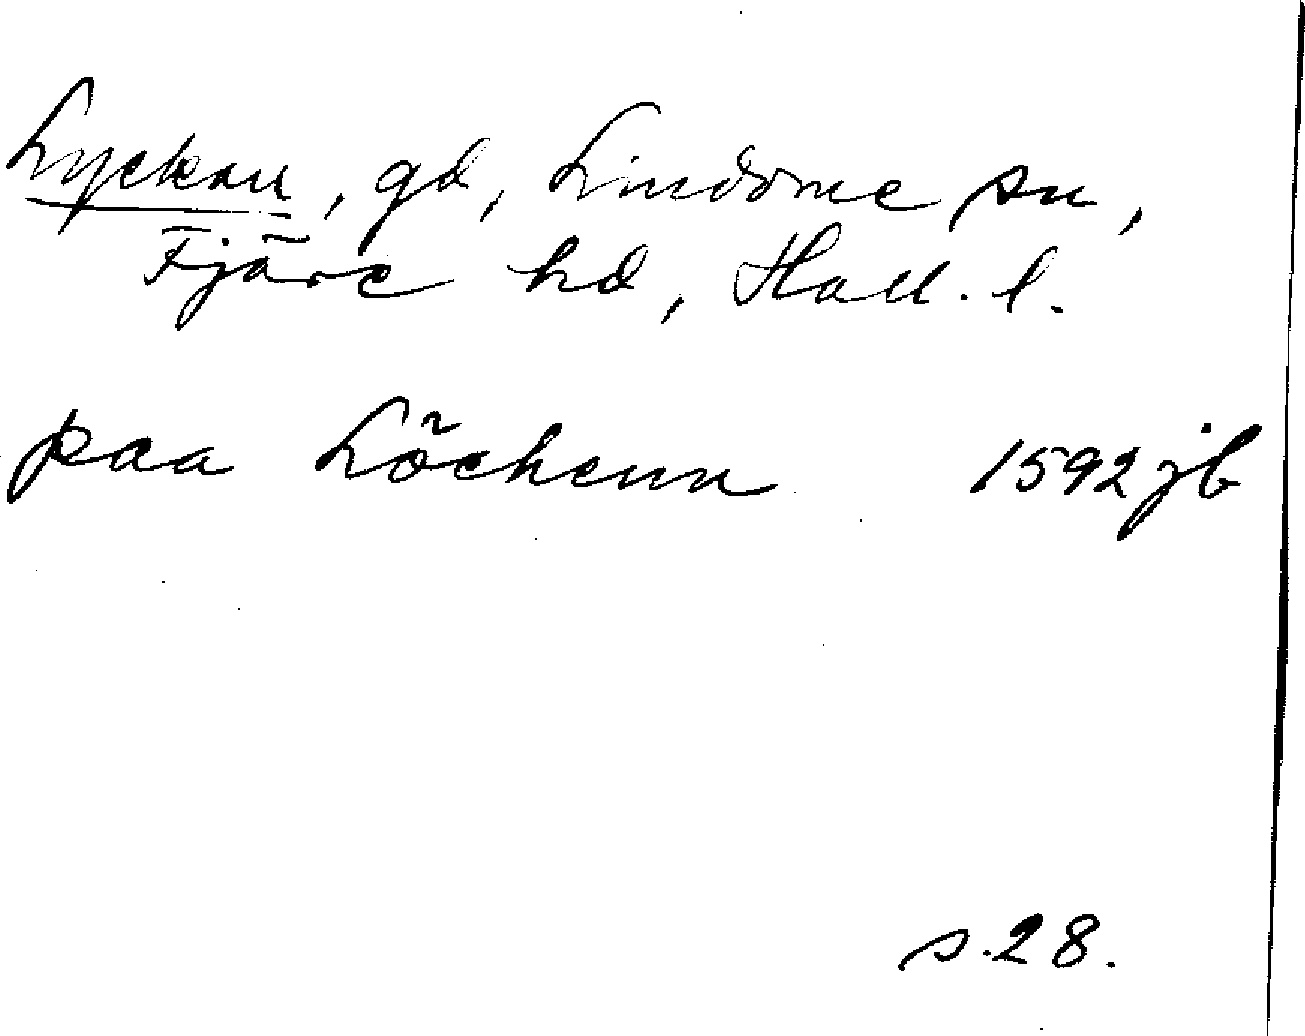 Lyckan, gd, Lindome sn,
Fjäre hd, Hall. l.
paa Löckenn 1592 jb
s. 28.